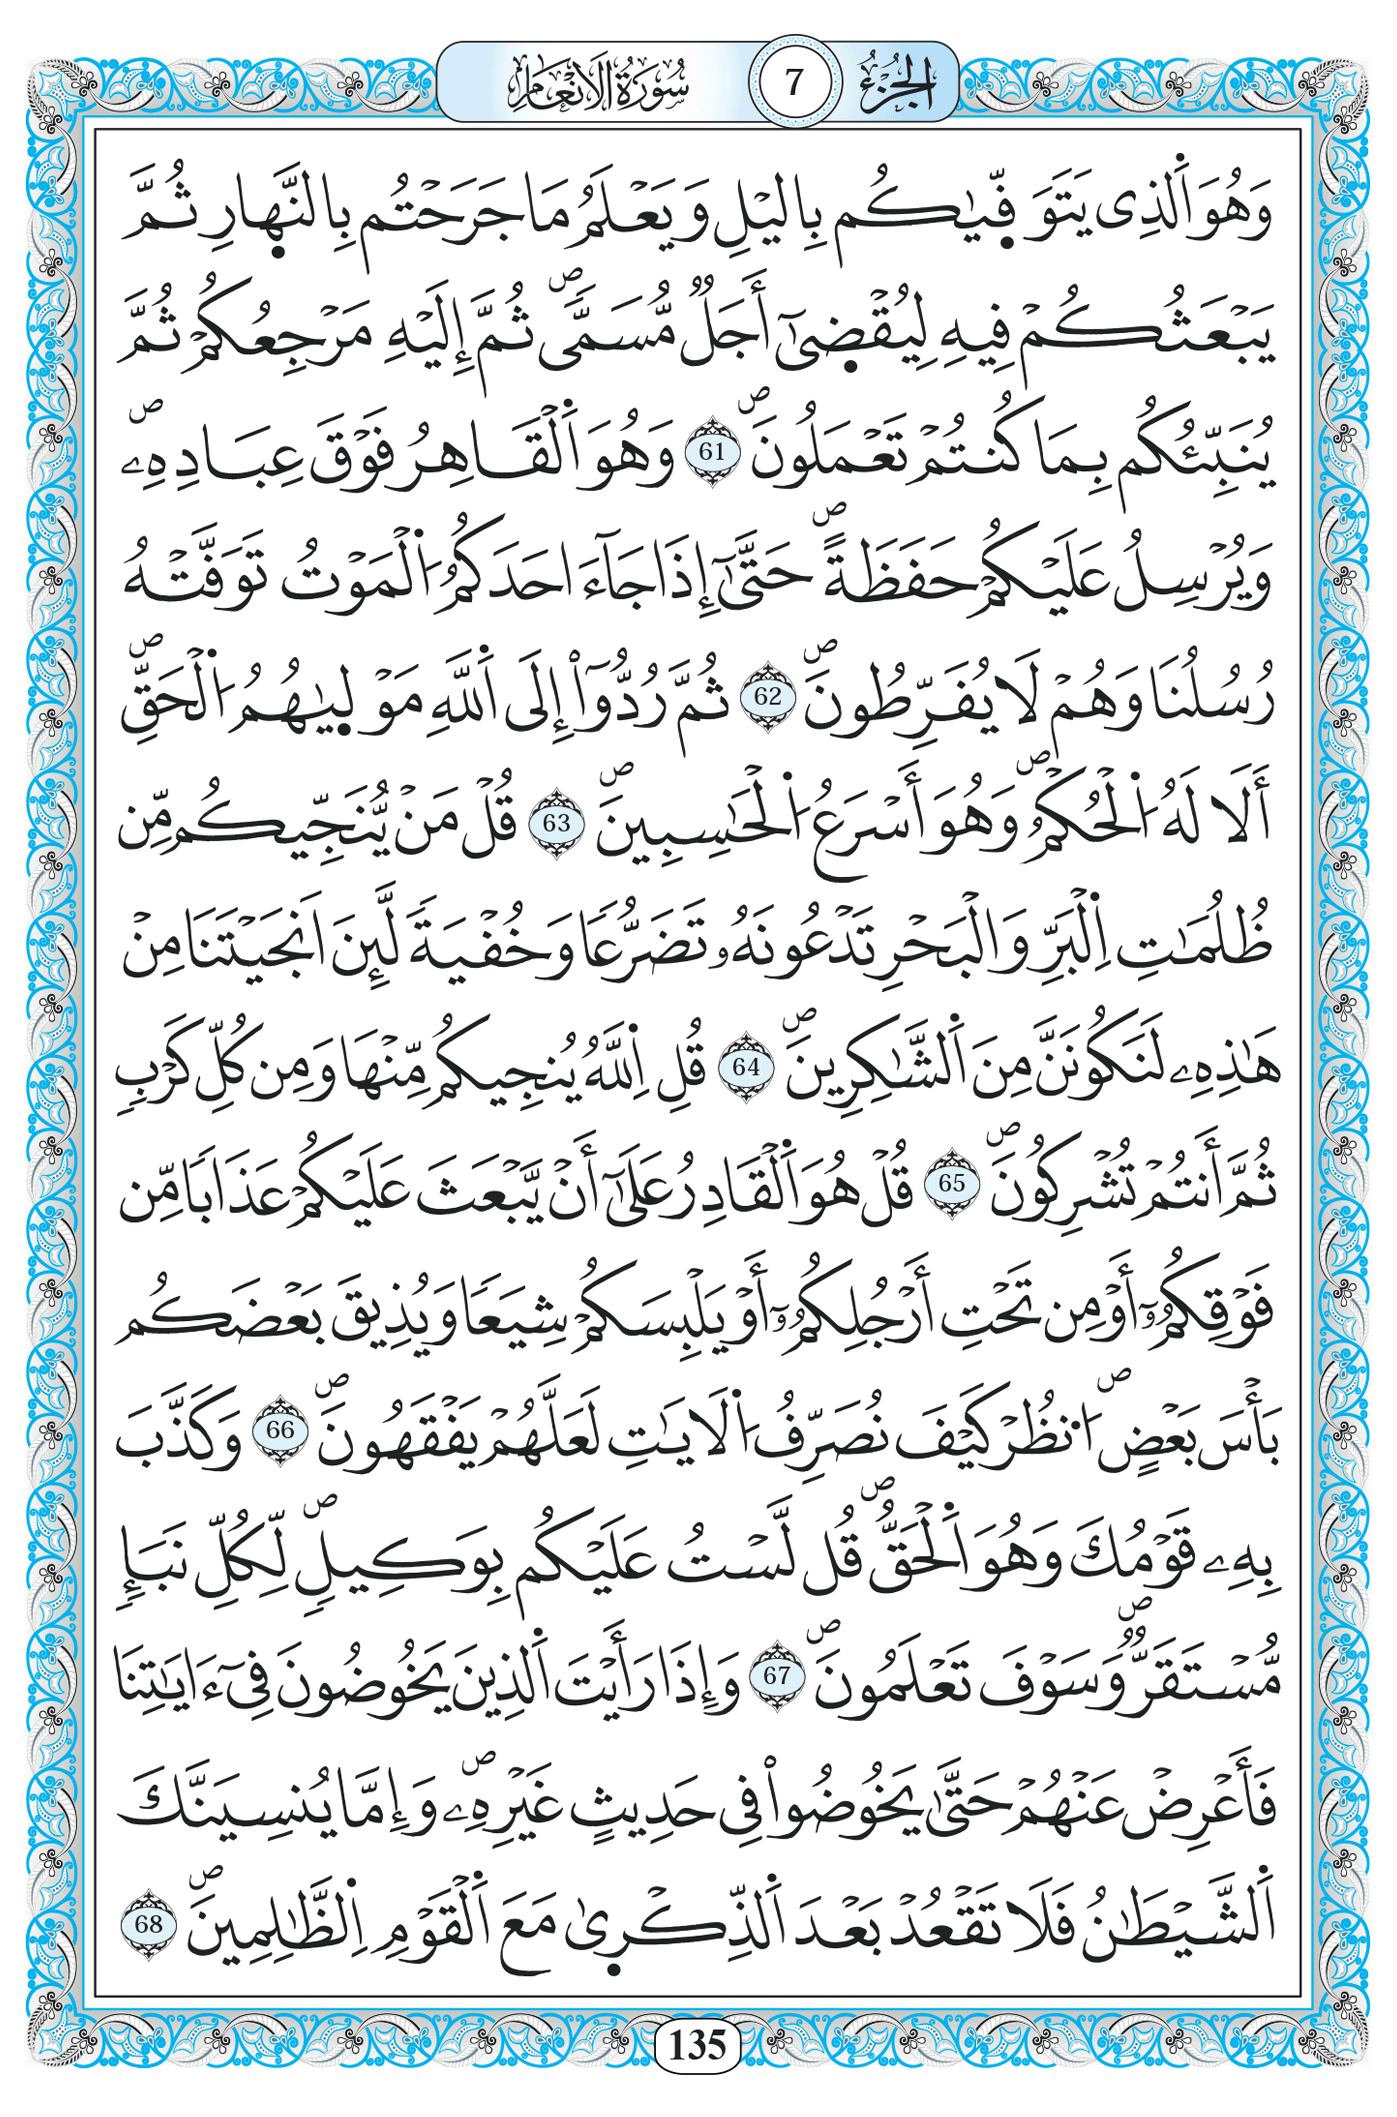 الجزء 7 سورة الانعام
وَهُوَ اَ۬لذِے يَتَوَفّ۪يٰكُم بِاليْلِ وَيَعْلَمُ مَا جَرَحْتُم بِالنَّه۪ارِ ثُمَّ
يَبْعَثُكُمْ فِيهِ لِيُقْض۪ىٰٓ أَجَلٞ مُّسَمّيٗۖ ثُمَّ إِلَيْهِ مَرْجِعُكُمْ ثُمَّ
يُنَبِّئُكُم بِمَا كُنتُمْ تَعْمَلُونَۖ 61 وَهُوَ اَ۬لْقَاهِرُ فَوْقَ عِبَادِهِۦۖ
وَيُرْسِلُ عَلَيْكُمْ حَفَظَةًۖ حَتَّىٰٓ إِذَا جَآءَ احَدَكُمُ اُ۬لْمَوْتُ تَوَفَّتْهُ
رُسُلُنَا وَهُمْ لَا يُفَرِّطُونَۖ 62 ثُمَّ رُدُّوٓاْ إِلَى اَ۬للَّهِ مَوْل۪يٰهُمُ اُ۬لْحَقِّۖ
أَلَا لَهُ اُ۬لْحُكْمُۖ وَهُوَ أَسْرَعُ اُ۬لْحَٰسِبِينَۖ 63 قُلْ مَنْ يُّنَجِّيكُم مِّن
ظُلُمَٰتِ اِ۬لْبَرِّ وَالْبَحْرِ تَدْعُونَهُۥ تَضَرُّعاٗ وَخُفْيَةٗ لَّئِنَ اَنجَيْتَنَا مِنْ
هَٰذِهِۦ لَنَكُونَنَّ مِنَ اَ۬لشَّٰكِرِينَۖ 64 قُلِ اِ۬للَّهُ يُنجِيكُم مِّنْهَا وَمِن كُلِّ كَرْبٖ
ثُمَّ أَنتُمْ تُشْرِكُونَۖ 65 قُلْ هُوَ اَ۬لْقَادِرُ عَلَىٰٓ أَنْ يَّبْعَثَ عَلَيْكُمْ عَذَاباٗ مِّن
فَوْقِكُمُۥٓ أَوْ مِن تَحْتِ أَرْجُلِكُمُۥٓ أَوْ يَلْبِسَكُمْ شِيَعاٗ وَيُذِيقَ بَعْضَكُم
بَأْسَ بَعْضٍۖ اُ۟نظُرْ كَيْفَ نُصَرِّفُ اُ۬لَايَٰتِ لَعَلَّهُمْ يَفْقَهُونَۖ 66 وَكَذَّبَ
بِهِۦ قَوْمُكَ وَهُوَ اَ۬لْحَقُّۖ قُل لَّسْتُ عَلَيْكُم بِوَكِيلٖۖ لِّكُلِّ نَبَإٖ
مُّسْتَقَرّٞۖ وَسَوْفَ تَعْلَمُونَۖ 67 وَإِذَا رَأَيْتَ اَ۬لذِينَ يَخُوضُونَ فِےٓ ءَايَٰتِنَا
فَأَعْرِضْ عَنْهُمْ حَتَّىٰ يَخُوضُواْ فِے حَدِيثٍ غَيْرِهِۦۖ وَإِمَّا يُنسِيَنَّكَ
اَ۬لشَّيْطَٰنُ فَلَا تَقْعُدْ بَعْدَ اَ۬لذِّكْر۪ىٰ مَعَ اَ۬لْقَوْمِ اِ۬لظَّٰلِمِينَۖ 68
135